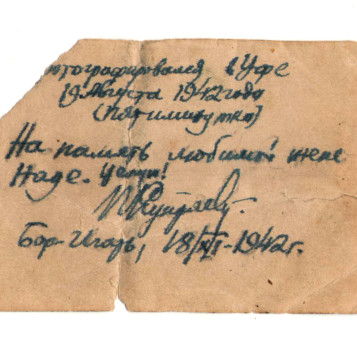 отографировался в Уфе
19 Августа 1942 года
(пятиминутка)
На память любимой жене
Наде. Целую!
Бор-Игарь, 18/XI-1942г.